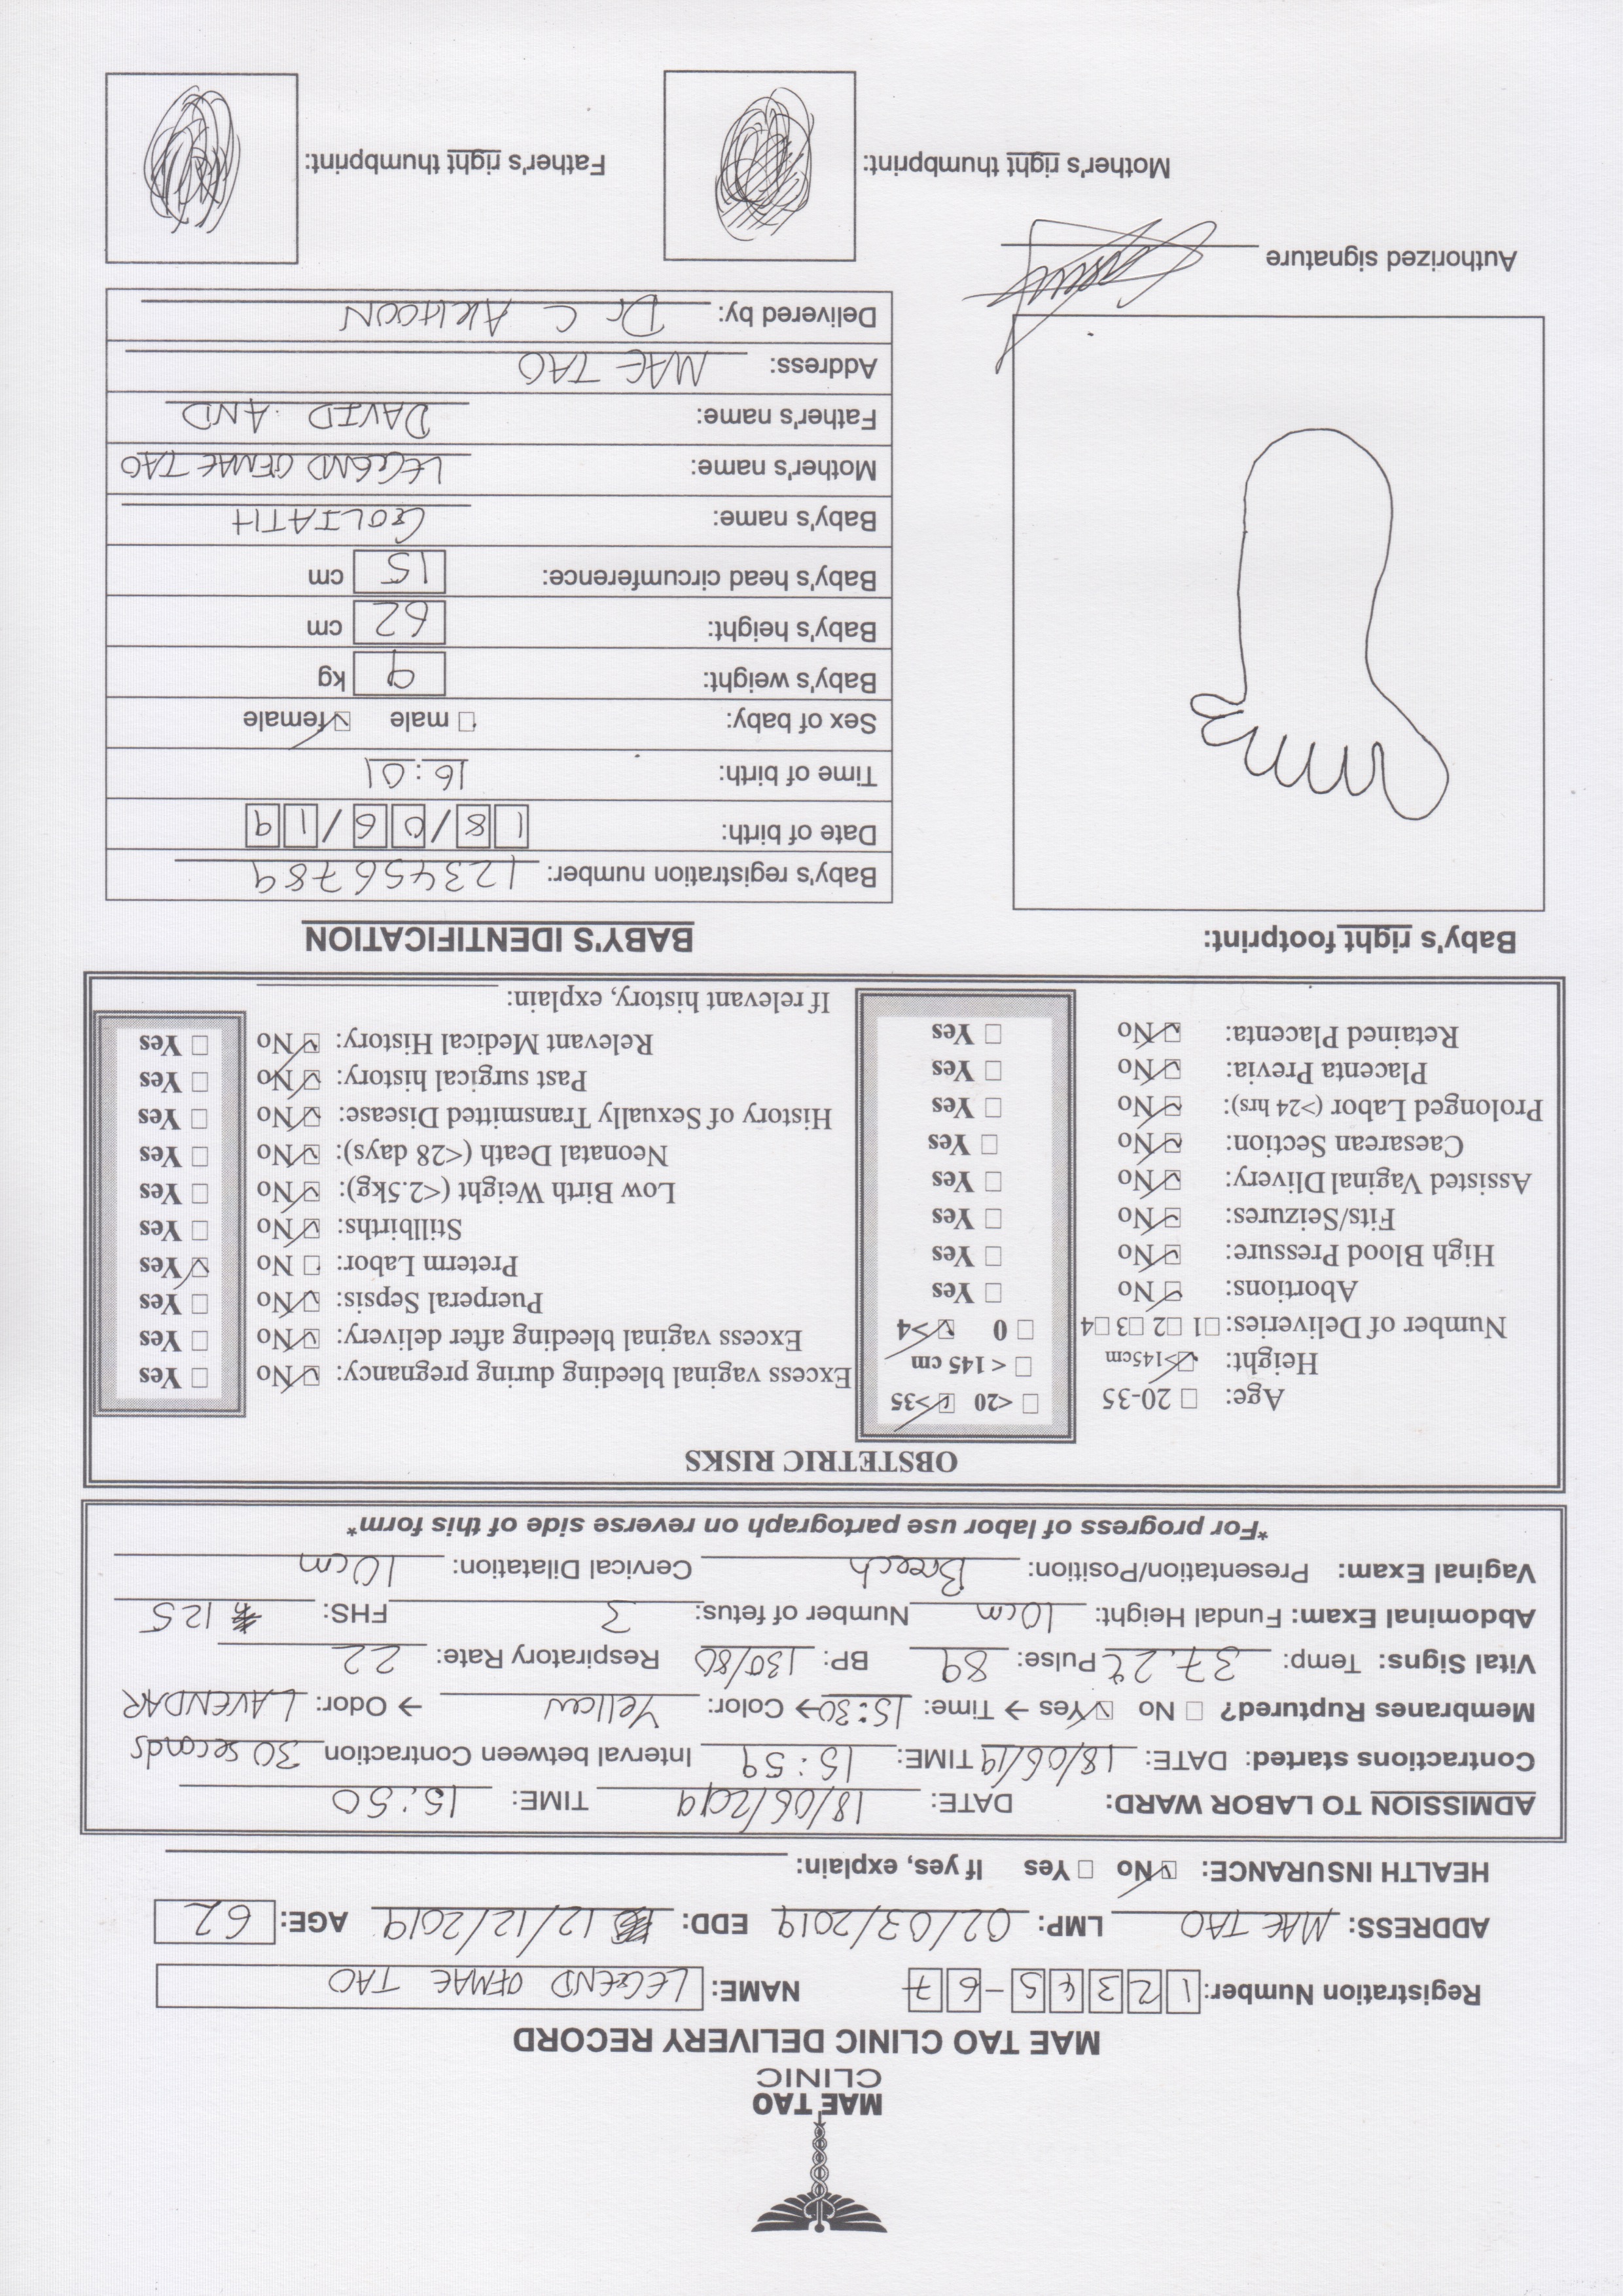 MAE TAO
CLINIC
MAE TAO CLINIC DELIVERY RECORD
Registration Number: 1 2 3 4 5 - 6 7 NAME: LEGEND OF MAE TAO
ADDRESS: MAE TAO LMP: 02/03/2019 EDD: 12/12/2019 AGE: 62
HEALTH INSURANCE: ☑ No ☐ Yes If yes, explain:
ADMISSION TO LABOR WARD: DATE: 18/06/2019 TIME: 15:50
Contractions started: DATE: 18/06/19 TIME: 15:59 Interval between Contraction 30 seconds
Membranes Ruptured? ☐ No ☑ Yes → Time: 15:30 → Color: Yellow → Odor: LAVENDAR
Vital Signs: Temp: 37.2°C Pulse: 89 BP: 130/80 Respiratory Rate: 22
Abdominal Exam: Fundal Height: 10cm Number of fetus: 3 FHS: 125
Vaginal Exam: Presentation/Position: Breech Cervical Dilatation: 10cm
*For progress of labor use partograph on reverse side of this form*
OBSTETRIC RISKS
Age: ☐ 20-35 ☐ <20 ☑ >35
Height: ☑ >145cm ☐ < 145 cm
Number of Deliveries: ☐1 ☐2 ☐3 ☐4 ☐ 0 ☑ >4
Abortions: ☑ No ☐ Yes
High Blood Pressure: ☑ No ☐ Yes
Fits/Seizures: ☑ No ☐ Yes
Assisted Vaginal Dlivery: ☑ No ☐ Yes
Caesarean Section: ☑ No ☐ Yes
Prolonged Labor (>24 hrs): ☑ No ☐ Yes
Placenta Previa: ☑ No ☐ Yes
Retained Placenta: ☑ No ☐ Yes
Excess vaginal bleeding during pregnancy: ☑ No ☐ Yes
Excess vaginal bleeding after delivery: ☑ No ☐ Yes
Puerperal Sepsis: ☑ No ☐ Yes
Preterm Labor: ☐ No ☑ Yes
Stillbirths: ☑ No ☐ Yes
Low Birth Weight (<2.5kg): ☑ No ☐ Yes
Neonatal Death (<28 days): ☑ No ☐ Yes
History of Sexually Transmitted Disease: ☑ No ☐ Yes
Past surgical history: ☑ No ☐ Yes
Relevant Medical History: ☑ No ☐ Yes
If relevant history, explain:
Baby's right footprint:
BABY'S IDENTIFICATION
Baby's registration number: 123456789
Date of birth: 18/06/19
Time of birth: 16:01
Sex of baby: ☐ male ☑ female
Baby's weight: 9 kg
Baby's height: 62 cm
Baby's head circumference: 15 cm
Baby's name: GOLIATH
Mother's name: LEGEND OF MAE TAO
Father's name: DAVID AND
Address: MAE TAO
Delivered by: Dr C AKHOON
Authorized signature
Mother's right thumbprint:
Father's right thumbprint: